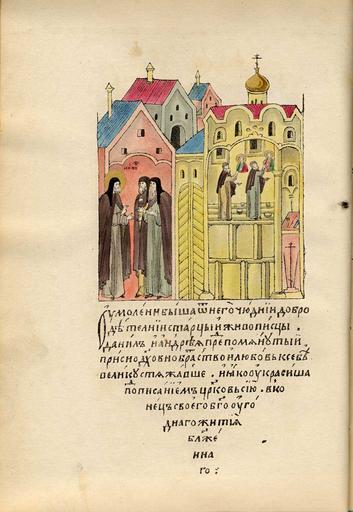 Умолени быша ѿ него чюднїи добро
дѣтелнїи старцы и живописцы.
данилъ и андрѣй препомянутый
присно духовно братство и любовь к себѣ
велику стяжавше. и яко украсиша
подписанїемъ црковь сїю. в ко
нецъ своего бгоуго
днаго житїя
блже
нна
го: